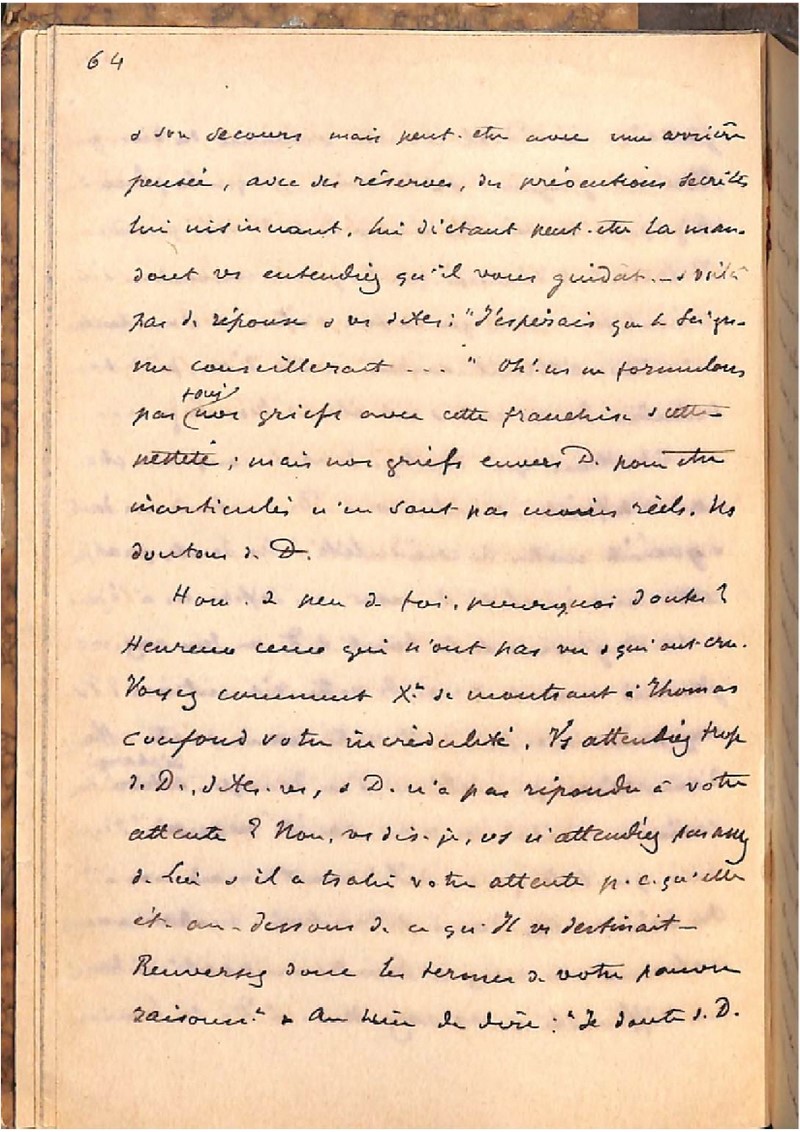 64
& son secours mais peut-etre avec une arrière
pensée, avec des réserves, des précautions secrètes
lui insinuant, lui dictant peut-etre la man.
dont vs entendiez qu'il vous guidât. _ & voilà
pas de réponse & vs dites : "J'espérais que le Seign-
me conseillerait ... " Oh! ns ne formulons
pas touj nos griefs avec cette franchise & cette
netteté ; mais nos griefs envers D. pour etre
inarticulés n'en sont pas moins réels. Ns
doutons de D.
Hom. de peu de foi, pourquoi douter ?
Heureux ceux qui n'ont pas vu & qui ont cru.
Voyez comment Xt se montrant à Thomas
confond votre incrédulité. Vs attendiez trop
de D., dites-vs, & D. n'a pas répondu à votre
attente ? Non, vs dis-je, vs n'attendiez pas assez
de Lui & il a trahi votre attente p.c.qu'elle
ét. au-dessous de ce qu'Il vs destinait _
Renversez donc les termes de votre pauvre
raisonnt & au lieu de dire : "Je doute d. D.